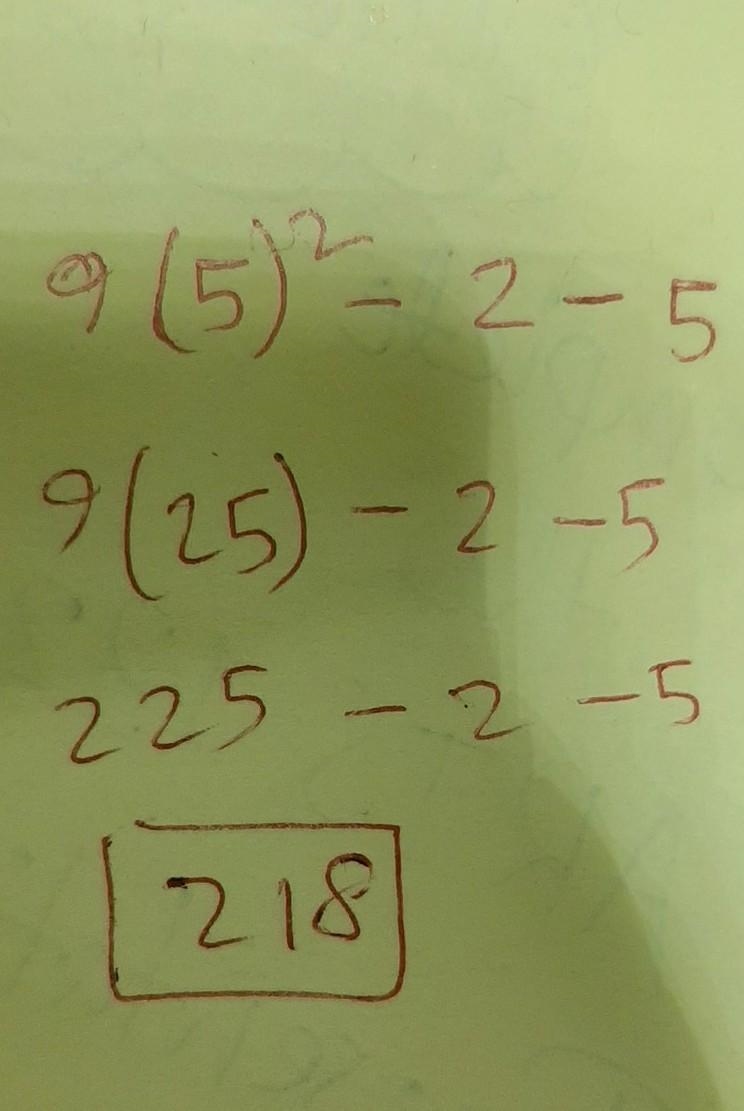 9(5)² - 2 - 5
9(25) - 2 - 5
225 - 2 - 5
218